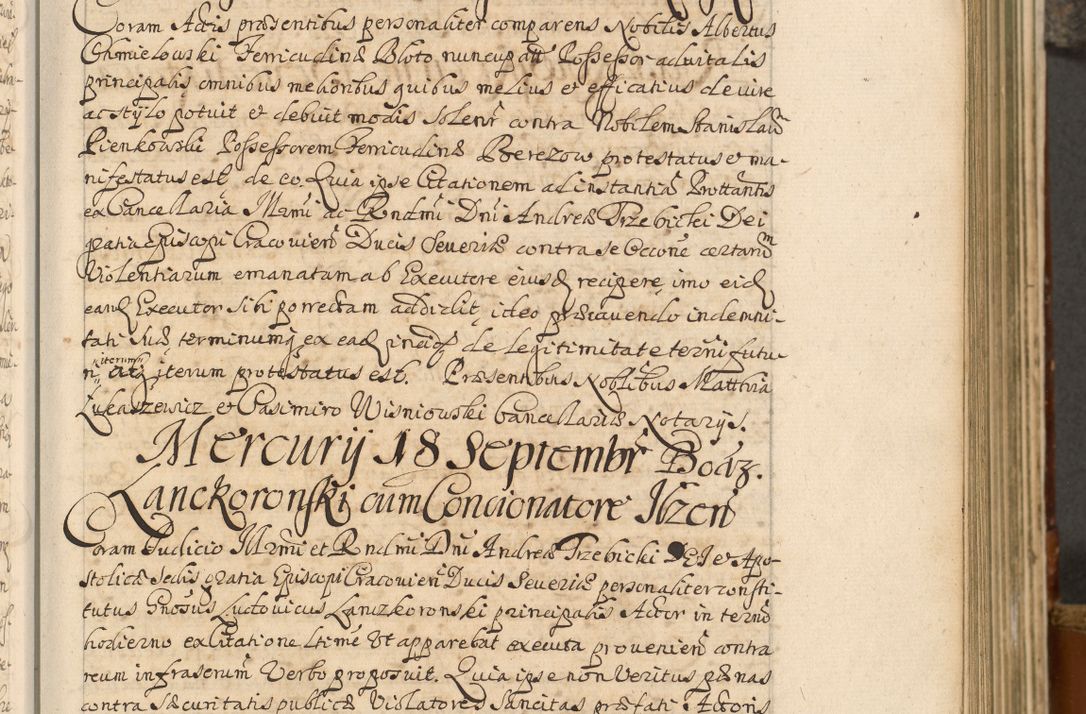 Coram Actis præsentibus personaliter comparens Nobilis Albertus
Chmielowski Ferricudinæ Bloto nuncupatt Possessor advitalis
principalis omnibus melioribus quibus melius et efficatius de iure
ac stylo potuit et debuit modis solenr contra Nobilem Stanislaum
Pienkowski Possessorem Ferricudinæ Berezow protestatus et ma-
nifestatus est, de eo. Quia ipse Citationem ad instantiā Prottantis
ex Cancellaria Illrmi ac Rndmi Dni Andreæ Trzebicki Dei
gratia Episcopi Cracovien Ducis Severiæ contra se occone certarum
Violentiarum emanatam ab Executore eiusd recipere, imo eid
eand Executor sibi porrectam addixit, ideo præcavendo indemni-
tati suæ, terminumq ex ead incidq de legitimitate termi futu-
ri, "iterum" atq iterum protestatus est. Præsentibus Noblibus Matthia
Lukaszewicz et Casimiro Wisniowski Cancellariæ Notarijs.
Mercurij 18 Septembr Bodz.
Lanckoronski cum Concionatore Ilzen
Coram Iudicio Illrmi et Rndmi Dni Andreæ Trzebicki DEI et Apo-
stolicæ Sedis gratia Episcopi Cracovien Ducis Severiæ personaliter consti-
tutus Gnosus Ludovicus Lanczkoronski principalis Actor in termo
hodierno ex Citatione Ltime Ut apparebat executa provenien contra
reum infrascrum Verbo proposuit. Quia ipse non Veritus pænas
contra Sæcuritatis publicæ Violatores sancitas præfati Actoris